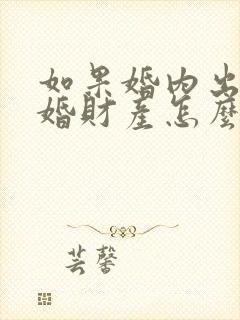 如果婚内出
婚財產怎麼
芸馨